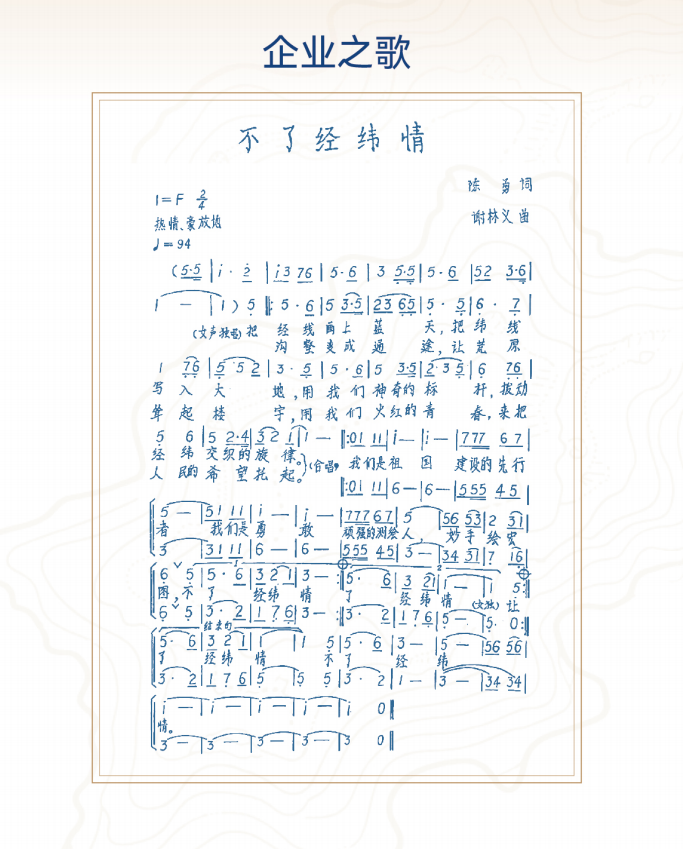 企业之歌
不了经纬情
陈勇 词
1=F 2/4
热情、豪放地
谢林义 曲
♩=94
(5·5 | i · 2 | i3 76 | 5·6 | 3 5·5 | 5·6 | 52 3·6 |
1 — | 1 ) 5 ‖: 5·6 | 5 3·5 | 23 65 | 5· 5 | 6· 7 |
(女声独唱) 把 经 线 画上 蓝 天, 把 纬 线
沟 壑 变 成 通 途, 让 荒 原
1 76 | 5 5 2 | 3· 5 | 5·6 | 5 3·5 | 2·3 5 | 6 76 |
写 入 大 地, 用 我 们 神奇的 标 杆, 拨动
耸 起 楼 宇, 用 我 们 火红的 青 春, 来把
5 6 | 5 2·4 | 3 2 1 | 1 — ‖: 01 11 | i — | i — | 777 67 |
经 纬 交织的 旋 律。 (合唱) 我们是 祖 国 建设的 先行
人 民的 希 望 托 起。
‖: 01 11 | 6 — | 6 — | 555 45 |
5 — | 51 11 | i — | i — | 77767 | 5 | 56 53 | 2 31 |
者 我们是 勇 敢 顽强的测绘 人, 妙手 绘 宏
3 — | 31 11 | 6 — | 6 — | 555 45 | 3 — | 34 31 | 7 16 |
6 5 | 5·6 | 3 2 1 | 3 — :‖ 5· 6 | 3 21 | 1 — | 1 5 :‖
图, 不 了 经纬 情 了 经 纬 情 (女独) 让
6 5 | 3·2 | 1 76 | 3 — :‖ 3· 2 | 176 | 5 — | 5· 0 :‖
结束句
5· 6 | 3 2 1 | 1 | 1 5 | 5·6 | 3 — | 5 — | 56 56 |
了 经纬 情 不 了 经 纬
3· 2 | 1 76 | 5 | 5 5 | 3·2 | 1 — | 3 — | 34 34 |
i — | i — | i — | i — | i 0 ‖
情。
3 — | 3 — | 3 — | 3 — | 3 0 ‖